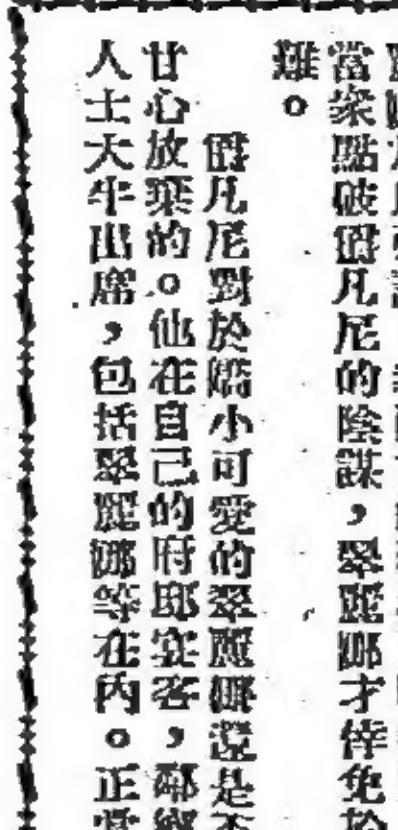 當衆點破爵凡尼的陰謀，翠麗娜才倖免於
難。
爵凡尼對於嬌小可愛的翠麗娜還是不
甘心放棄的。他在自己的府邸宴客，鄰鄉
人士大半出席，包括翠麗娜等在內。正當